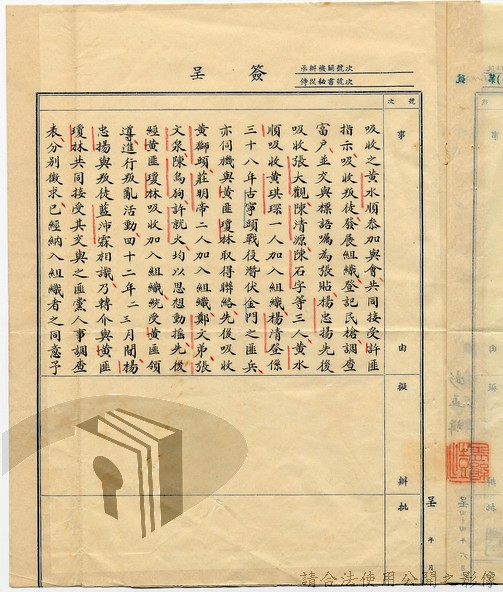 簽呈
承辦機關號次
侍從秘書號次
號次
事由
擬辦
批
吸收之黃水順參加與會共同接受許匪
指示吸收叛徒發展組織登記民槍調查
富戶並交與標語囑為張貼楊忠揚先後
吸收張大觀陳清源陳石字等三人黃水
順吸收黃琪璖一人加入組織楊清登係
三十八年古寧頭戰役潛伏金門之匪兵
亦伺機與黃匪瓊林取得聯絡先後吸收
黃獅頭莊明帝二人加入組織鄭天弟張
文泉陳烏狗許就火均以思想動搖先後
經黃匪瓊林吸收加入組織統受黃匪領
導進行叛亂活動四十二年二月間楊
忠揚與叛徒藍沛霖相識乃轉介與黃匪
瓊林共同接受其交與之匪黨人事調查
表分別徵求已經納入組織者之同意予
呈
年
月
請合法使用公開之影像